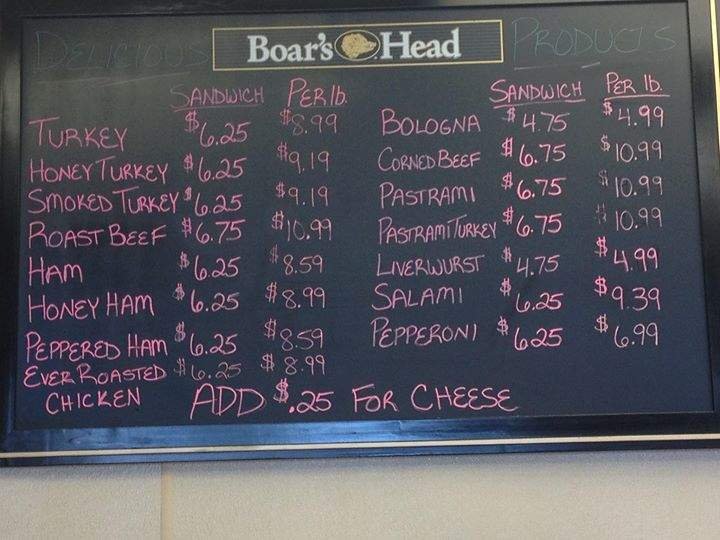 DELICIOUS Boar's Head PRODUCTS
SANDWICH PER lb.
TURKEY $6.25 $8.99
HONEY TURKEY $6.25 $9.19
SMOKED TURKEY $6.25 $9.19
ROAST BEEF $6.75 $10.99
HAM $6.25 $8.59
HONEY HAM $6.25 $8.99
PEPPERED HAM $6.25 $8.59
EVER ROASTED $6.25 $8.99
CHICKEN
SANDWICH PER lb.
BOLOGNA $4.75 $4.99
CORNED BEEF $6.75 $10.99
PASTRAMI $6.75 $10.99
PASTRAMI TURKEY $6.75 $10.99
LIVERWURST $4.75 $4.99
SALAMI $6.25 $9.39
PEPPERONI $6.25 $6.99
ADD $.25 FOR CHEESE